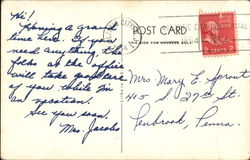 Hi!
Having a grand
time here. If you
need anything, the
folks at the office
will take good care
of you while I'm
on vacation.
See you soon.
Mrs. Jacobs
POST CARD
Mrs Mary L. Sprout
405 S 27th St.
Penbrook, Penna.